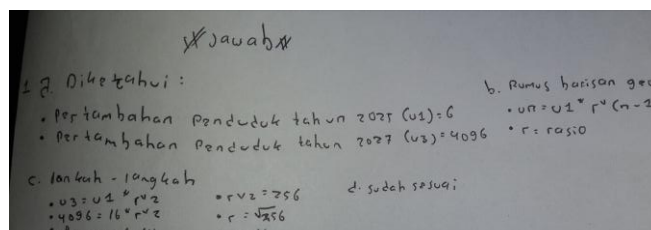 Jawab
1 a. Diketahui :
• Pertambahan Penduduk tahun 2025 (U1) = 6
• Pertambahan Penduduk tahun 2027 (U3) = 4096
b. Rumus barisan geo
• Un = U1 * r^ (n-2
• r = rasio
c. langkah - langkah
• U3 = U1 * r^2
• 4096 = 16 * r^2
• r^2 = 256
• r = √256
d. sudah sesuai